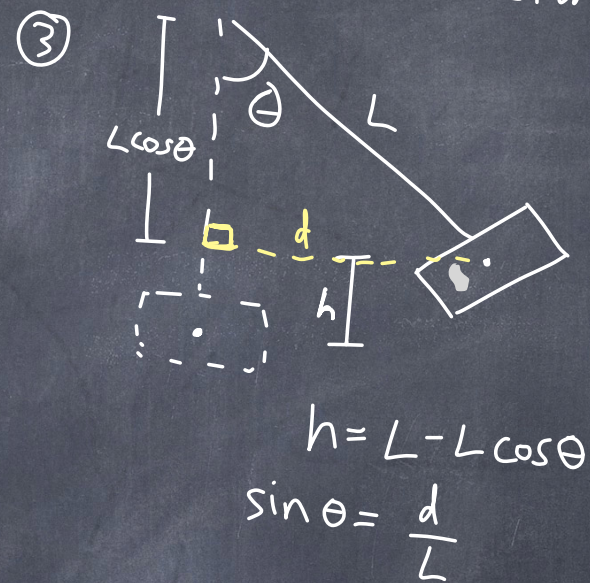 ③
θ
L
Lcosθ
d
h
h = L - L cosθ
sin θ = d/L